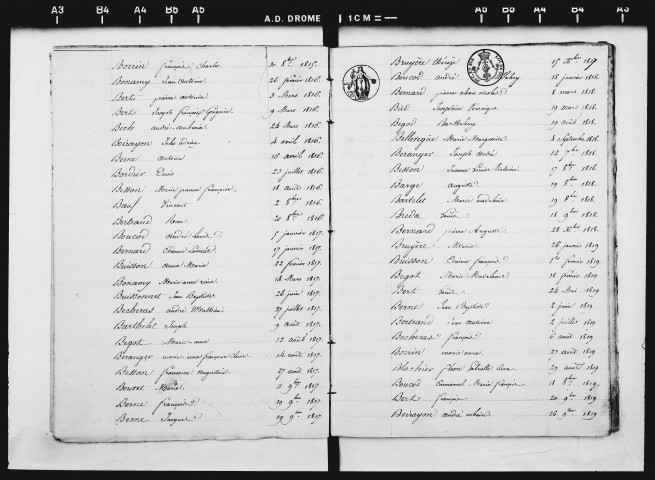 A3 A4 B5 A5 A.D. DROME 1CM A6 B6 B4 A3
françois Charles 20 8bre 1815.
Bonamy Jean Antoine 26 février 1816.
Bert pierre antoine 3 Mars 1816.
Bert Joseph françois Grégoire 9 Mars 1816.
Bert andré ambroise 24 Mars 1816.
4 avril 1816.
Berne antoine 16 avril 1816.
Bordier Denis 23 juillet 1816.
Besson Marie jeanne françoise 18 août 1816.
Bœuf Vincent 2 8bre 1816.
Bertrand 20 8bre 1816
Boucod andré 5 janvier 1817.
Bernard Etienne 17 janvier 1817.
Buisson anne Marie 22 février 1817.
Bonamy Marie anne 14 Mars 1817.
Buissonnet Jean Baptiste 26 juin 1817.
Becheras andré Matthieu 27 juillet 1817.
Barthelet Joseph 9 août 1817.
Begot Marie anne 13 août 1817.
Beranger marie anne françoise Claire 14 août 1817.
Besson françoise augustine 27 août 1817.
Bouvet Marie 11 9bre 1817.
Berne françois 19 9bre 1817.
Berne Jacques 19 9bre 1817.
Bruyère thérèse 15 Xbre 1817
Boucod andré 18 janvier 1818.
Bernard pierre 8 mars 1818.
Biel Joséphine Véronique 19 mars 1818.
Begod Barthelemy 19 août 1818.
Marie Marguerite 8 Septembre 1818.
Beranger Joseph andré 13 7bre 1818.
Besson Jeanne Louise Victoire 17 8bre 1818.
Barge auguste 19 8bre 1818.
Bartelet Marie Magdelaine 19 8bre 1818.
Breda Louis 18 9bre 1818.
Bernard pierre auguste 28 Xbre 1818.
Bruyère Marie 26 janvier 1819
Buisson françois 1er février 1819
Begot Marie Magdelaine 18 février 1819
Bert Louis 24 Mai 1819
Berne Jean Baptiste 2 juin 1819
Bertrand Jean antoine 2 juillet 1819
Becheras françois 6 août 1819
marie anne 27 août 1819
Blachier flore 29 août 1819
Boucod Emmanuel Marie françois 18 8bre 1819.
Bert françois 20 9bre 1819
andré 26 9bre 1819